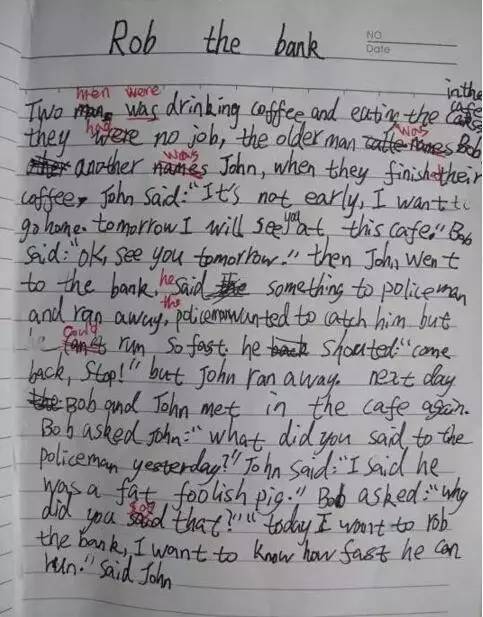 Rob the bank
NO.
Date
in the
men were cafe
Two man was drinking coffee and eating the cakes
had was
they were no job, the older man names Bob
was
another names John, when they finished their
coffee, John said: "It's not early, I want to
you
go home. tomorrow I will see at this cafe." Bob
said: "ok, see you tomorrow." then John went
he
to the bank, said something to policeman
the
and ran away, policeman wanted to catch him but
could
he can't run so fast. he back shouted: "come
back, Stop!" but John ran away. next day
the Bob and John met in the cafe again.
Bob asked John: "what did you said to the
policeman yesterday?" John said: "I said he
was a fat foolish pig." Bob asked: "why
say
did you said that?" "today I want to rob
the bank, I want to know how fast he can
run." said John